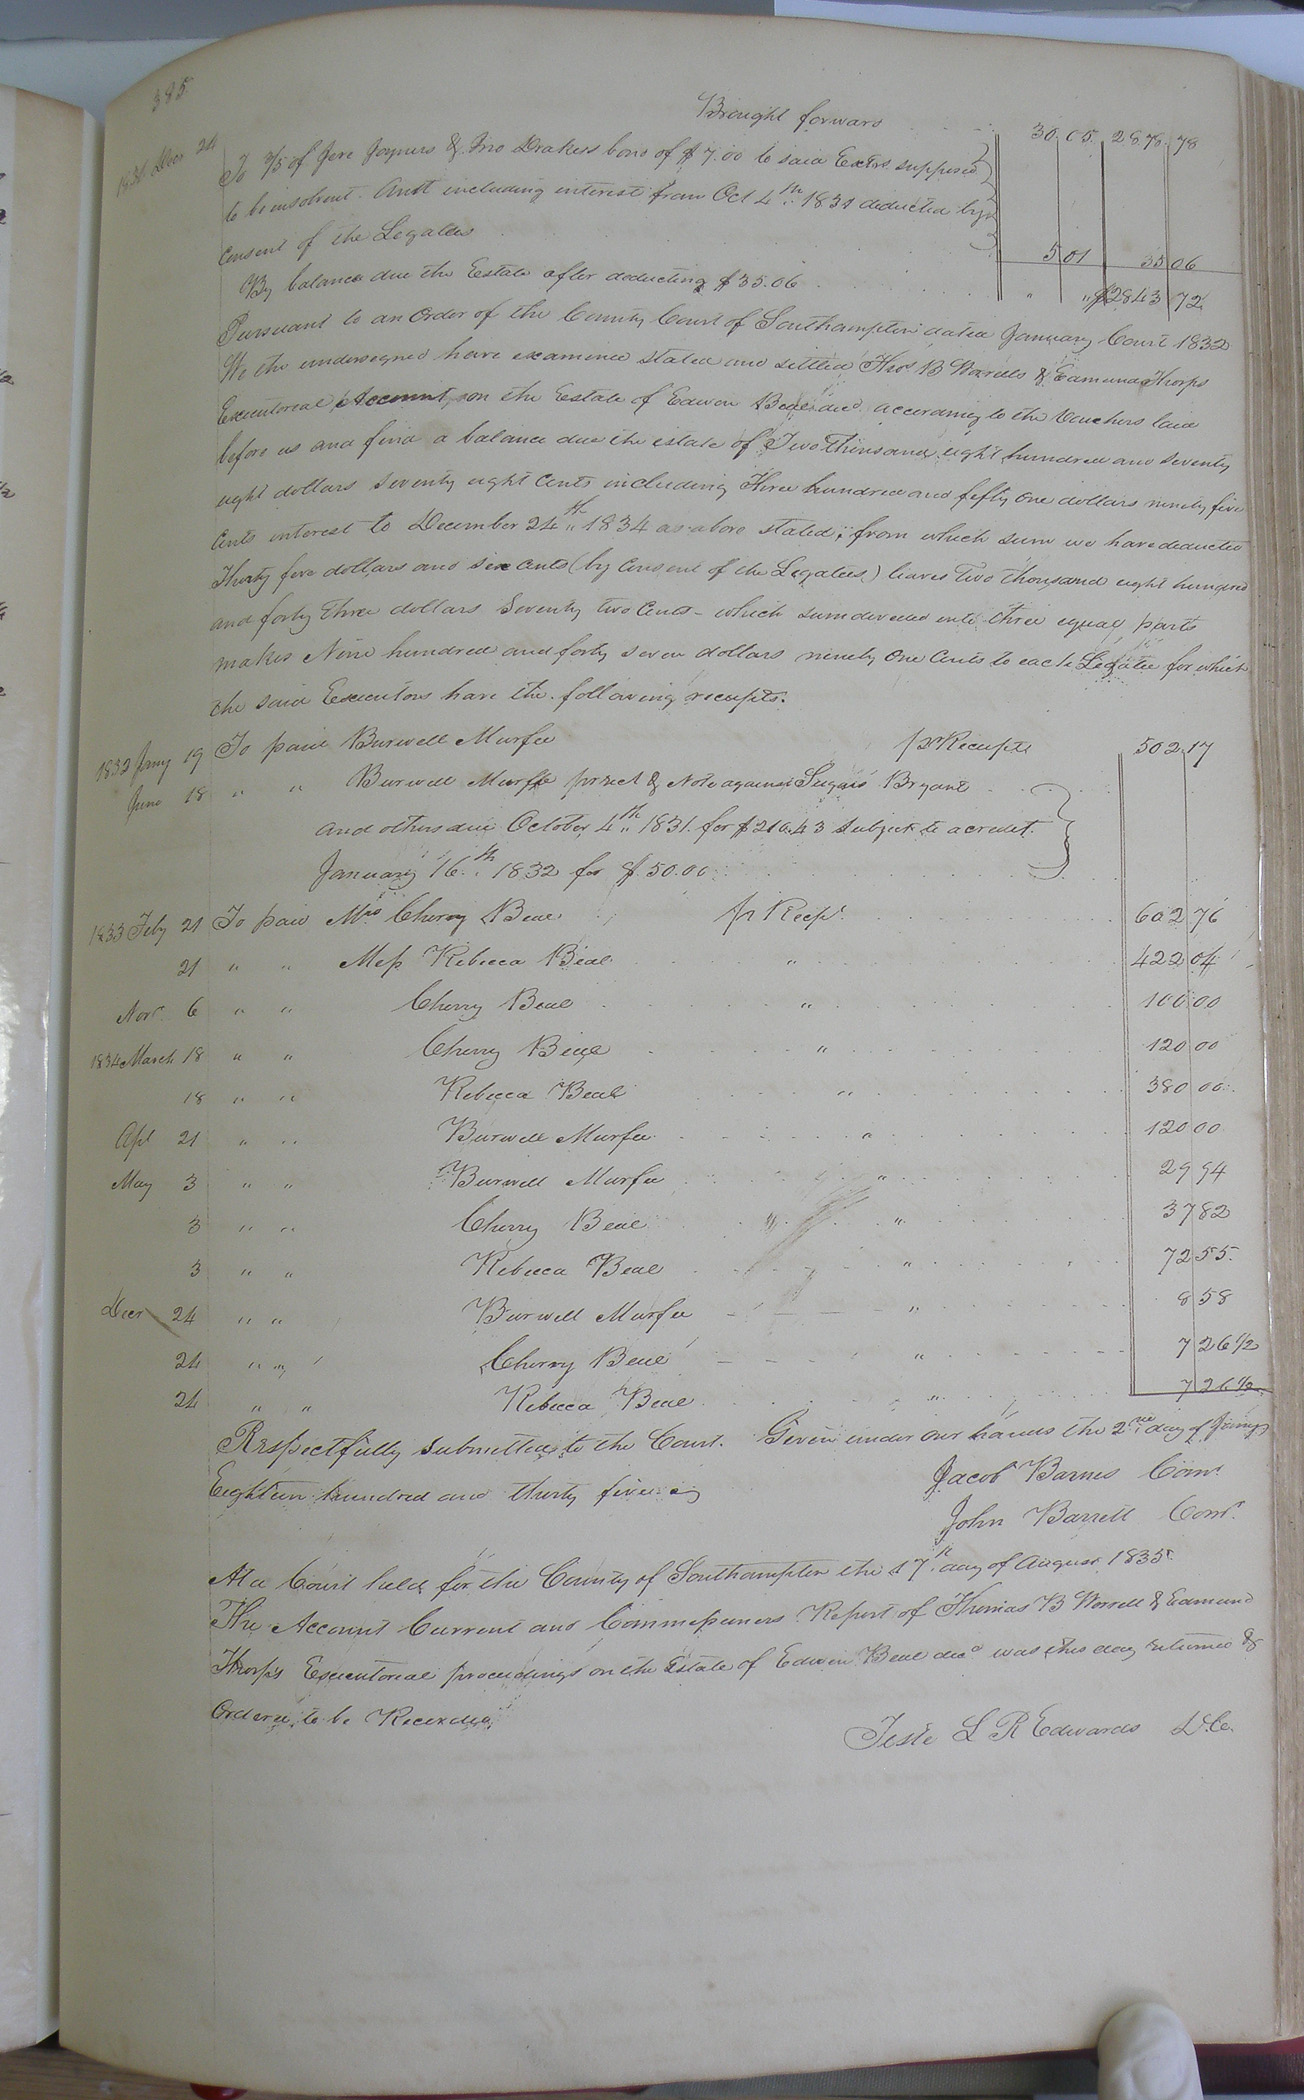 385
Brought forward 30 05 2878 78
1834 Decr 24 To 3/5 of Jere Joyners & Jno Drakes bond of $7.00 to said Exctors supposed
to be insolvent Amt including interest from Oct 4th 1831 deducted by
consent of the Legatees 5 01 35 06
By balance due the Estate after deducting $35.06 " " $2843 72
Pursuant to an Order of the County Court of Southampton dated January Court 1832
We the undersigned have examined stated and settled Thos B Worrells & Edmund Thorps
Executorial Account, on the Estate of Edwin Beal decd according to the Vouchers laid
before us and find a balance due the estate of Two Thousand eight hundred and seventy
eight dollars seventy eight cents including Three hundred and fifty one dollars ninety five
Cents interest to December 24th 1834 as above stated; from which sum we have deducted
Thirty five dollars and six cents (by Consent of the Legatees) leaves Two thousand eight hundred
and forty three dollars Seventy two Cents - which sum divided into three equal parts
makes Nine hundred and forty seven dollars ninety one Cents to each Legatee for which
the said Executors have the following receipts.
1832 Jany 19 To paid Burwell Murfee pr Receipts 502 17
June 18 " " Burwell Murfee pr rect & Note against Bryant
and others due October 4th 1831. for $216.43 Subject to a credit
January 16th 1832 for $50.00
1833 Feby 21 To paid Mrs Cherry Beal pr Recpt 602 76
21 " " Miss Rebecca Beal " 422 04
Novr 6 " " Cherry Beal " 100 00
1834 March 18 " " Cherry Beal " 120 00
18 " " Rebecca Beal " 380 00
Apl 21 " " Burwell Murfee " 120 00
May 3 " " Burwell Murfee " 29 94
3 " " Cherry Beal " 37 82
3 " " Rebecca Beal " 72 55
Decr 24 " " Burwell Murfee " 8 58
24 " " Cherry Beal " 7 26 1/2
24 " " Rebecca Beal " 7 26 1/2
Respectfully submitted to the Court. Given under our hands the 2nd day of Jany
Eighteen hundred and thirty five
Jacob Barnes Comr
John Barrett Comr
At a Court held for the County of Southampton the 17th day of August 1835
The Account Current and Commissioners Report of Thomas B Worrell & Edmund
Thorps Executorial proceedings on the Estate of Edwin Beal decd was this day returned &
Ordered to be Recorded
Teste L R Edwards D.C.